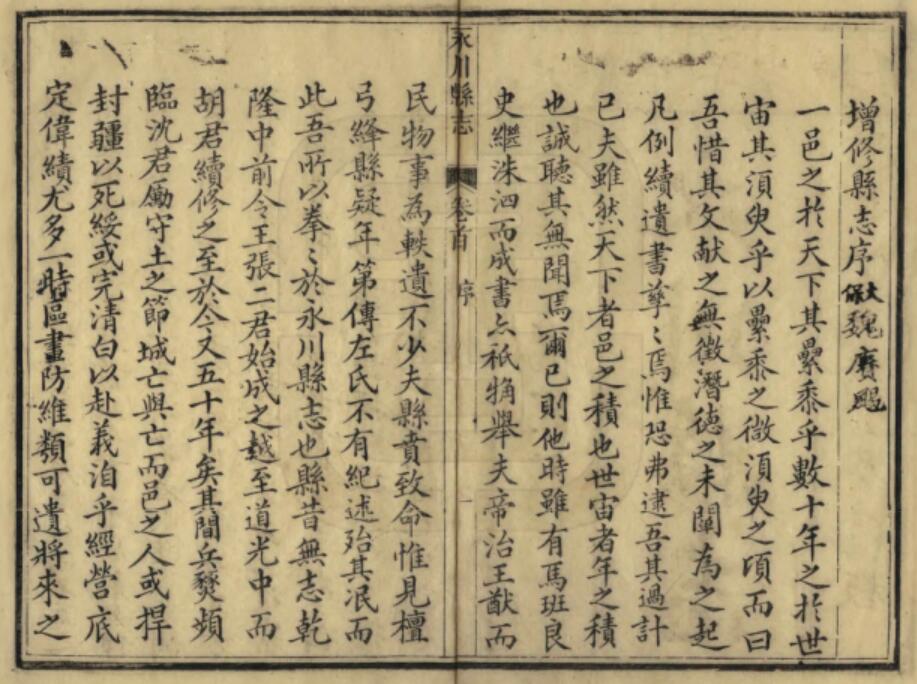 增修縣志序 大保 魏賡颺
一邑之於天下其纍黍乎數十年之於世
宙其湏臾乎以纍黍之微湏臾之頃而曰
吾惜其文献之無徵潛德之未闡為之起
凡例續遺書孳〻焉惟恐弗逮吾其過計
已夫雖然天下者邑之積也世宙者年之積
也誠聽其無聞焉爾已則他時雖有馬班良
史繼洙泗而成書亦祇觕舉夫帝治王猷而
永川縣志
卷首
序
一
民物事為軼遺不少夫縣賁致命惟見檀
弓絳縣疑年第傳左氏不有紀述殆其泯而
此吾所以拳〻於永川縣志也縣昔無志乾
隆中前令王張二君始成之越至道光中而
胡君續修之至於今又五十年矣其間兵燹頻
臨沈君勵守土之節城亡與亡而邑之人或捍
封疆以死綏或完清白以赴義洎乎經營底
定偉績尤多一時區畫防維類可遺將來之